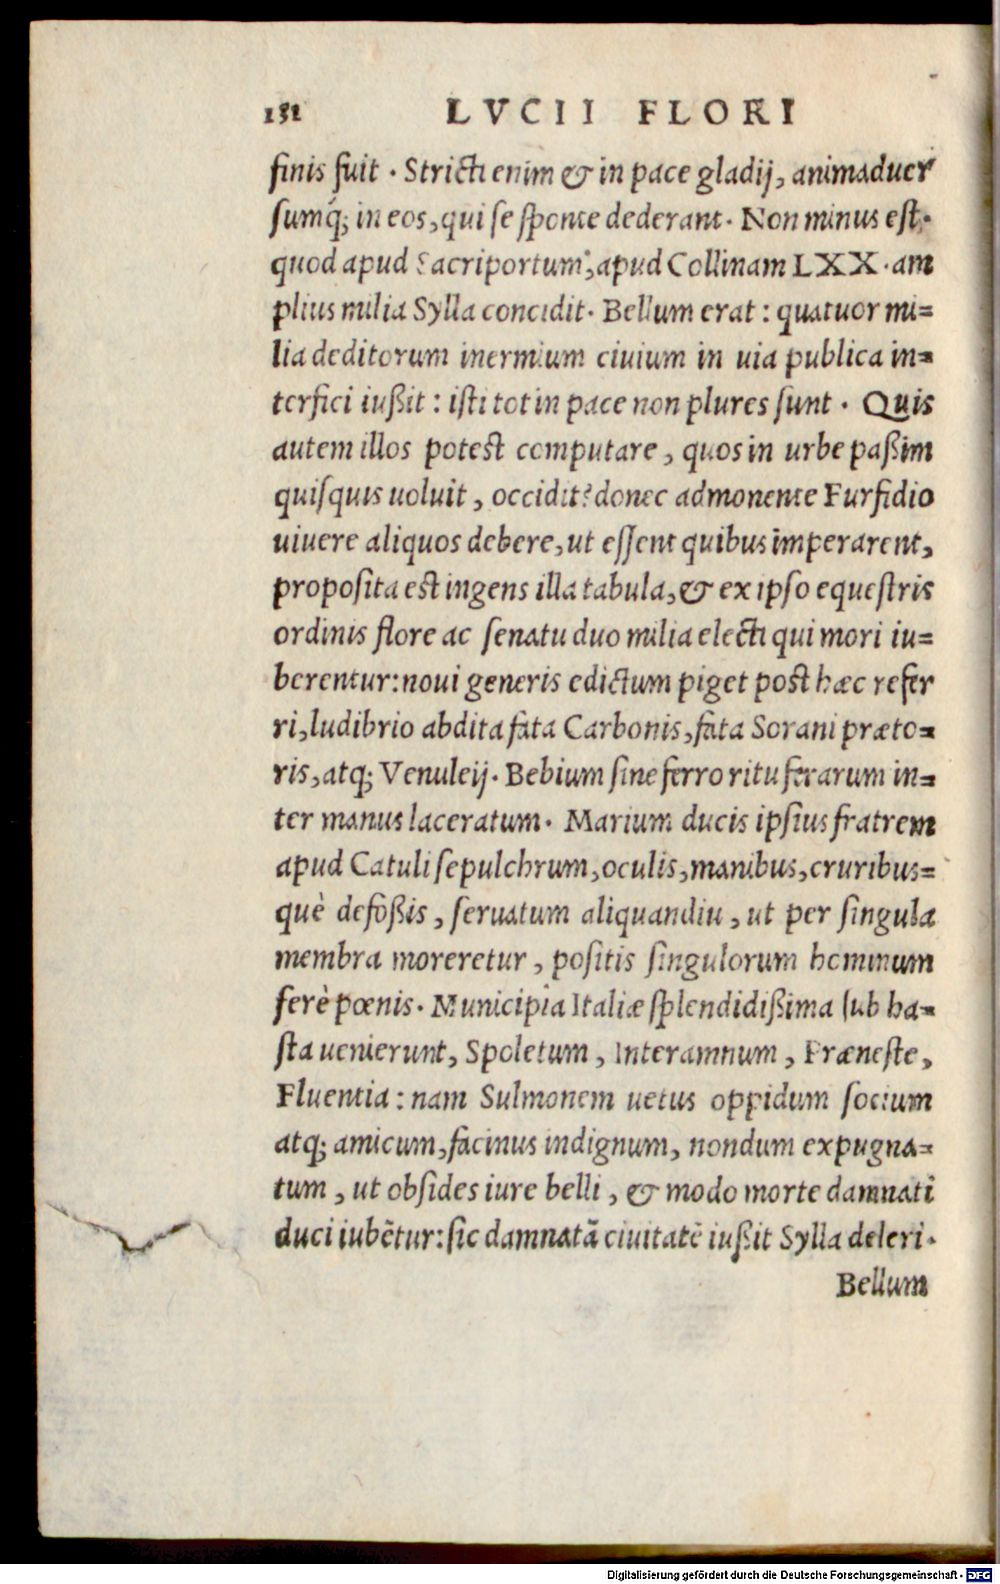 132 LVCII FLORI
finis fuit. Stricti enim & in pace gladij, animaduer
sumq́; in eos, qui se sponte dederant. Non minus est.
quod apud Sacriportum, apud Collinam LXX. am
plius milia Sylla concidit. Bellum erat: quatuor mi=
lia deditorum inermium ciuium in uia publica in=
terfici iußit: isti tot in pace non plures sunt. Quis
autem illos potest computare, quos in urbe paßim
quisquis uoluit, occidit? donec admonente Furfidio
uiuere aliquos debere, ut essent quibus imperarent,
proposita est ingens illa tabula, & ex ipso equestris
ordinis flore ac senatu duo milia electi qui mori iu=
berentur: noui generis edictum piget post hæc refer
ri, ludibrio abdita fata Carbonis, fata Sorani præto=
ris, atq; Venuleij. Bebium sine ferro ritu ferarum in=
ter manus laceratum. Marium ducis ipsius fratrem
apud Catuli sepulchrum, oculis, manibus, cruribus=
què defoßis, seruatum aliquandiu, ut per singula
membra moreretur, positis singulorum hominum
ferè pœnis. Municipia Italiæ splendidißima sub ha=
sta uenierunt, Spoletum, Interamnum, Præneste,
Fluentia: nam Sulmonem uetus oppidum socium
atq; amicum, facinus indignum, nondum expugna=
tum, ut obsides iure belli, & modo morte damnati
duci iubētur: sic damnatā ciuitatē iußit Sylla deleri.
Bellum
Digitalisierung gefördert durch die Deutsche Forschungsgemeinschaft - DFG